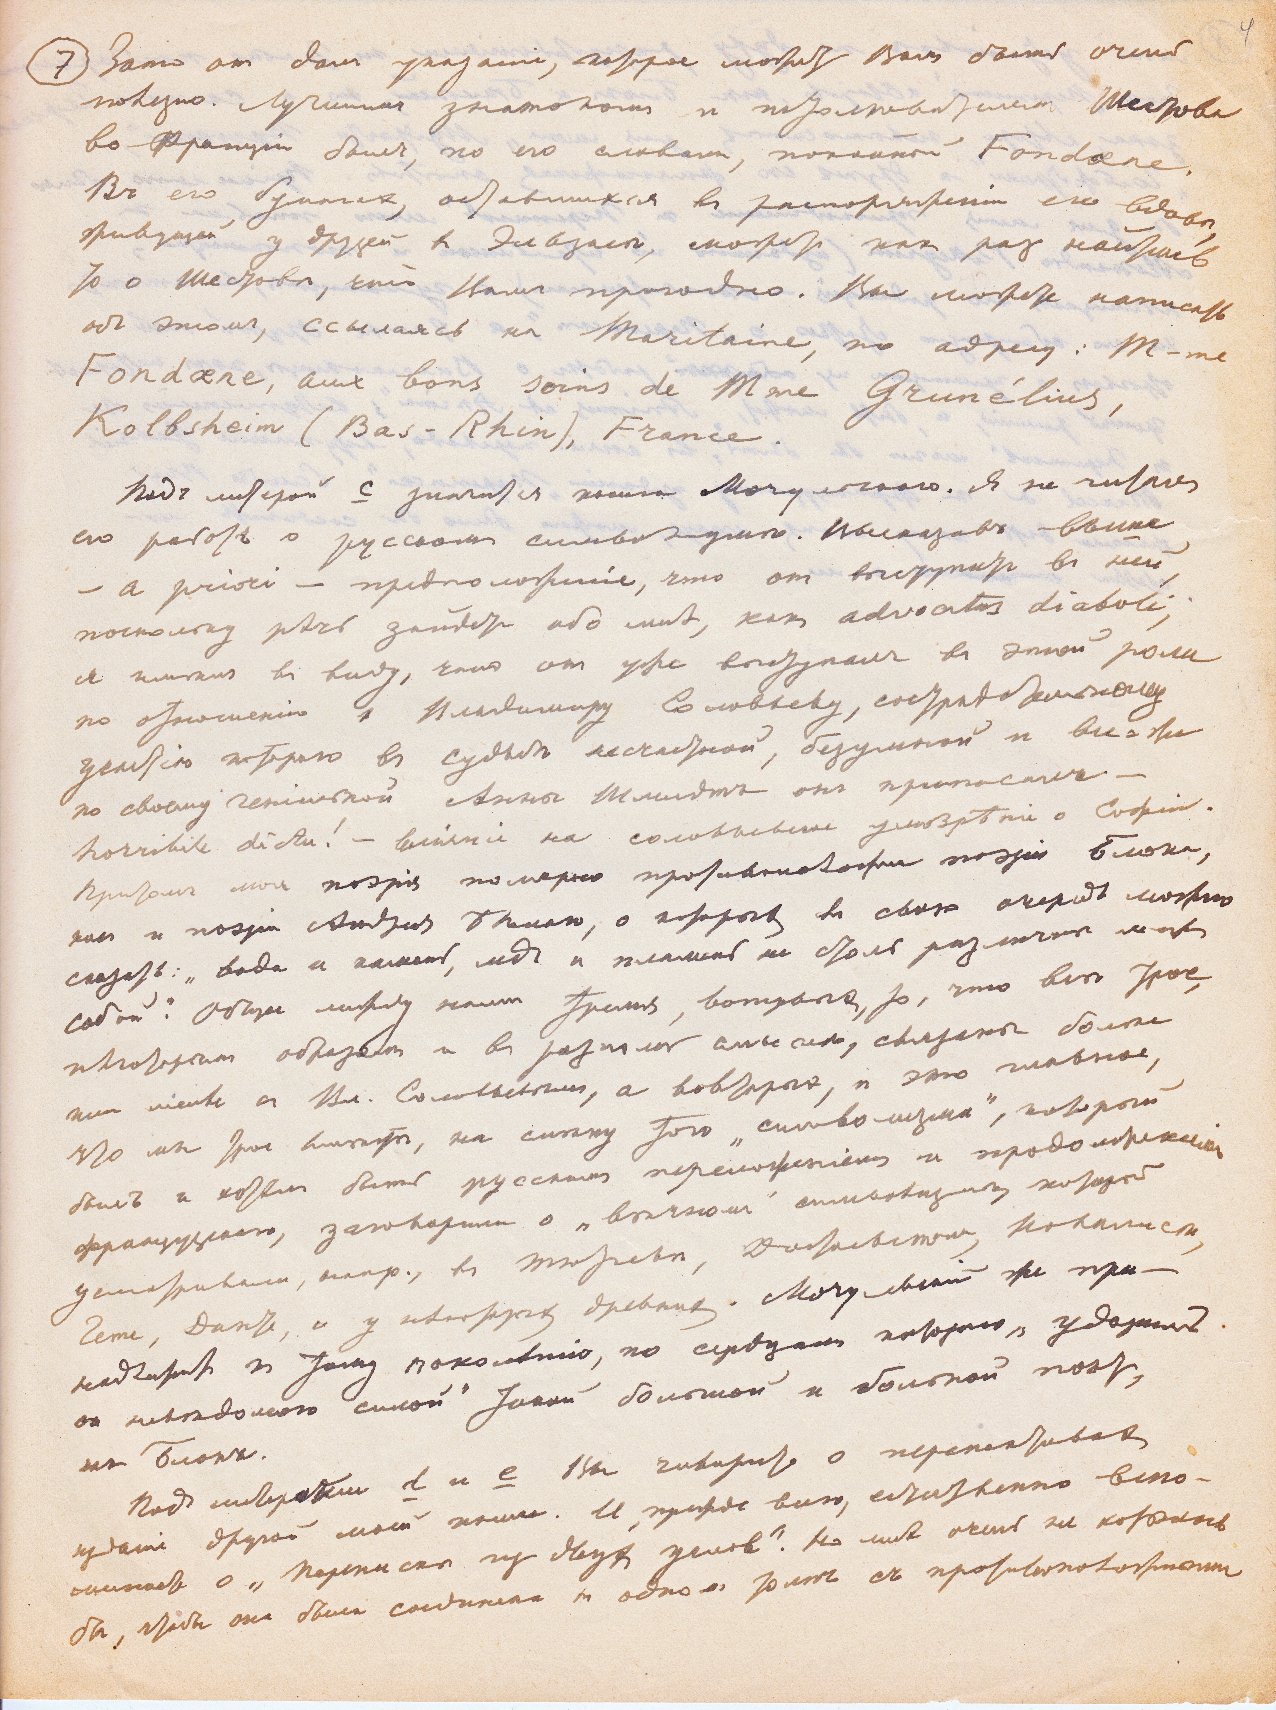 7 4
Зато он дал указаніе, которое может Вам быть очень
полезно. Лучшим знатоком и истолкователем Шестова
во Франціи был, по его словам, покойный Fondane.
Въ его бумагах, оставшихся в распоряженіи его вдовы,
живущей у друзей в Эльзасе, может как раз найтись
то о Шестове, что Вам пригодно. Вы можете написать
об этом, ссылаясь на Maritaine, по адресу: M-me
Fondane, aux bons soins de Mme Grunélius,
Kolbsheim (Bas-Rhin), France.
Подъ литерой c значится книга Мочульского. Я не читал
его работъ о русском символизме. Высказав выше
— a priori — предположеніе, что он выступит в ней,
поскольку рѣчь зайдет обо мнѣ, как advocatus diaboli,
я имел в виду, что он уже выступал в этой роли
по отношенію к Владимиру Соловьеву, сострадательному
участію которого в судьбѣ несчастной, безумной и все-же
по своему геніальной Анны Шмидт он приписал —
horribile dictu! — вліяніе на соловьевское умозрѣніе о Софіи.
Притом моя поэзія полярно противоположна поэзіи Блока,
как и поэзіи Андрея Бѣлаго, о которых в свою очередь можно
сказать: „вода и камень, лед и пламень не столь различны меж
собой". Общее между нами тремя, вопервых, то, что все трое,
нѣкоторым образом и в разном смысле, связаны более
или менѣе с Вл. Соловьевым, а вовторых, и это главное,
что мы трое вместе, на смену того „символизма", который
был и хотѣл быть русским переложеніем и продолженіем
французского, заговорили о „вѣчном" символизме, который
усматривали, напр., в Тютчеве, Достоевском, Новалисе,
Гете, Данте, и у некоторых древних. Мочульский же при-
надлежит к тому поколѣнію, по сердцам которого „ударил
он невѣдомою силой" такой большой и больной поэт,
как Блокъ.
Подъ литерами d и e Вы говорите о перспективах
изданія другой моей книги. И, прежде всего, естественно вспо-
минаете о „Переписке из двух углов". Но мнѣ очень не хотелось
бы, чтобы она была соединена в одном томе съ противоположными